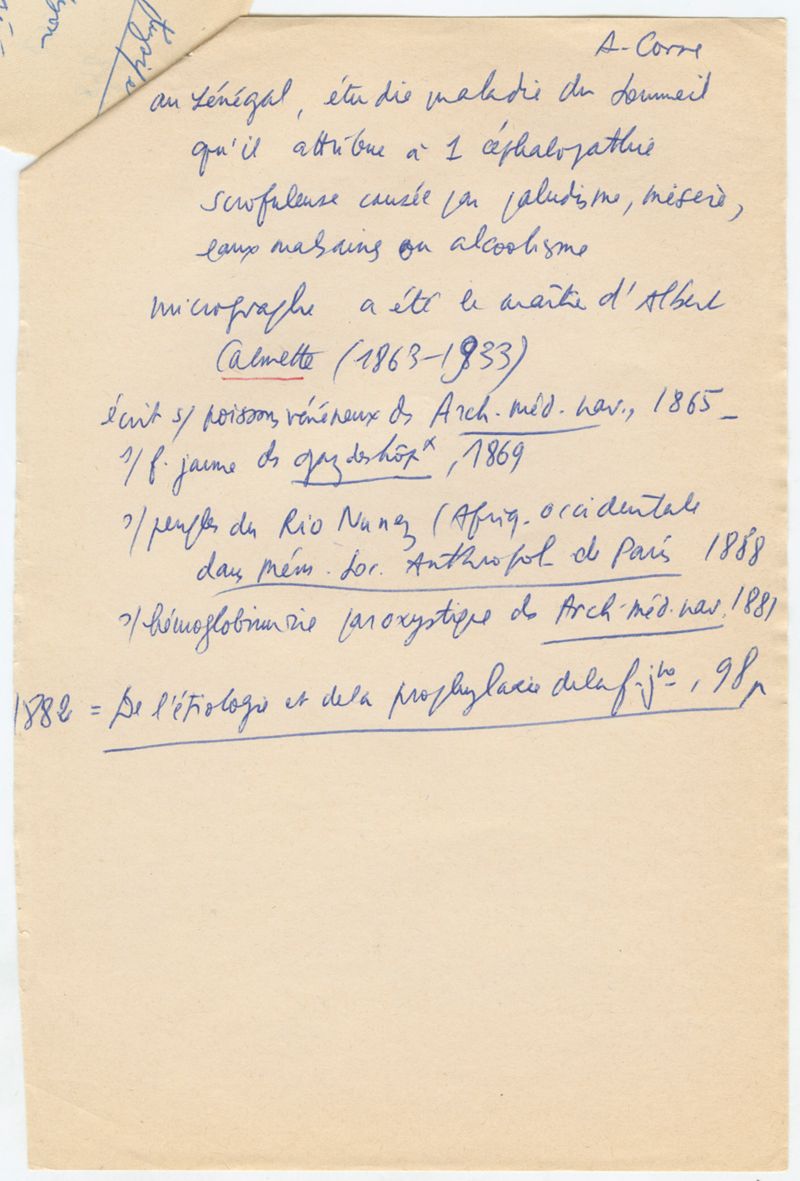 A-Corre
au Sénégal, étudie maladie du Sommeil
qu'il attribue à 1 céphalopathie
scrofuleuse causée par paludisme, misère,
eaux malsaines ou alcoolisme
micrographe a été le maître d'Albert
Calmette (1863-1933)
écrit s/ poissons vénéneux ds Arch. méd. nav., 1865
s/ f. jaune ds gaz des hôpx, 1869
s/ peuples du Rio Nunez (Afriq. occidentale
dans Mém. Soc. Anthropol. de Paris 1888
s/ hémoglobinurie paroxystique ds Arch. méd. nav. 1881
1882 = De l'étiologie et de la prophylaxie de la f. jne, 98 p